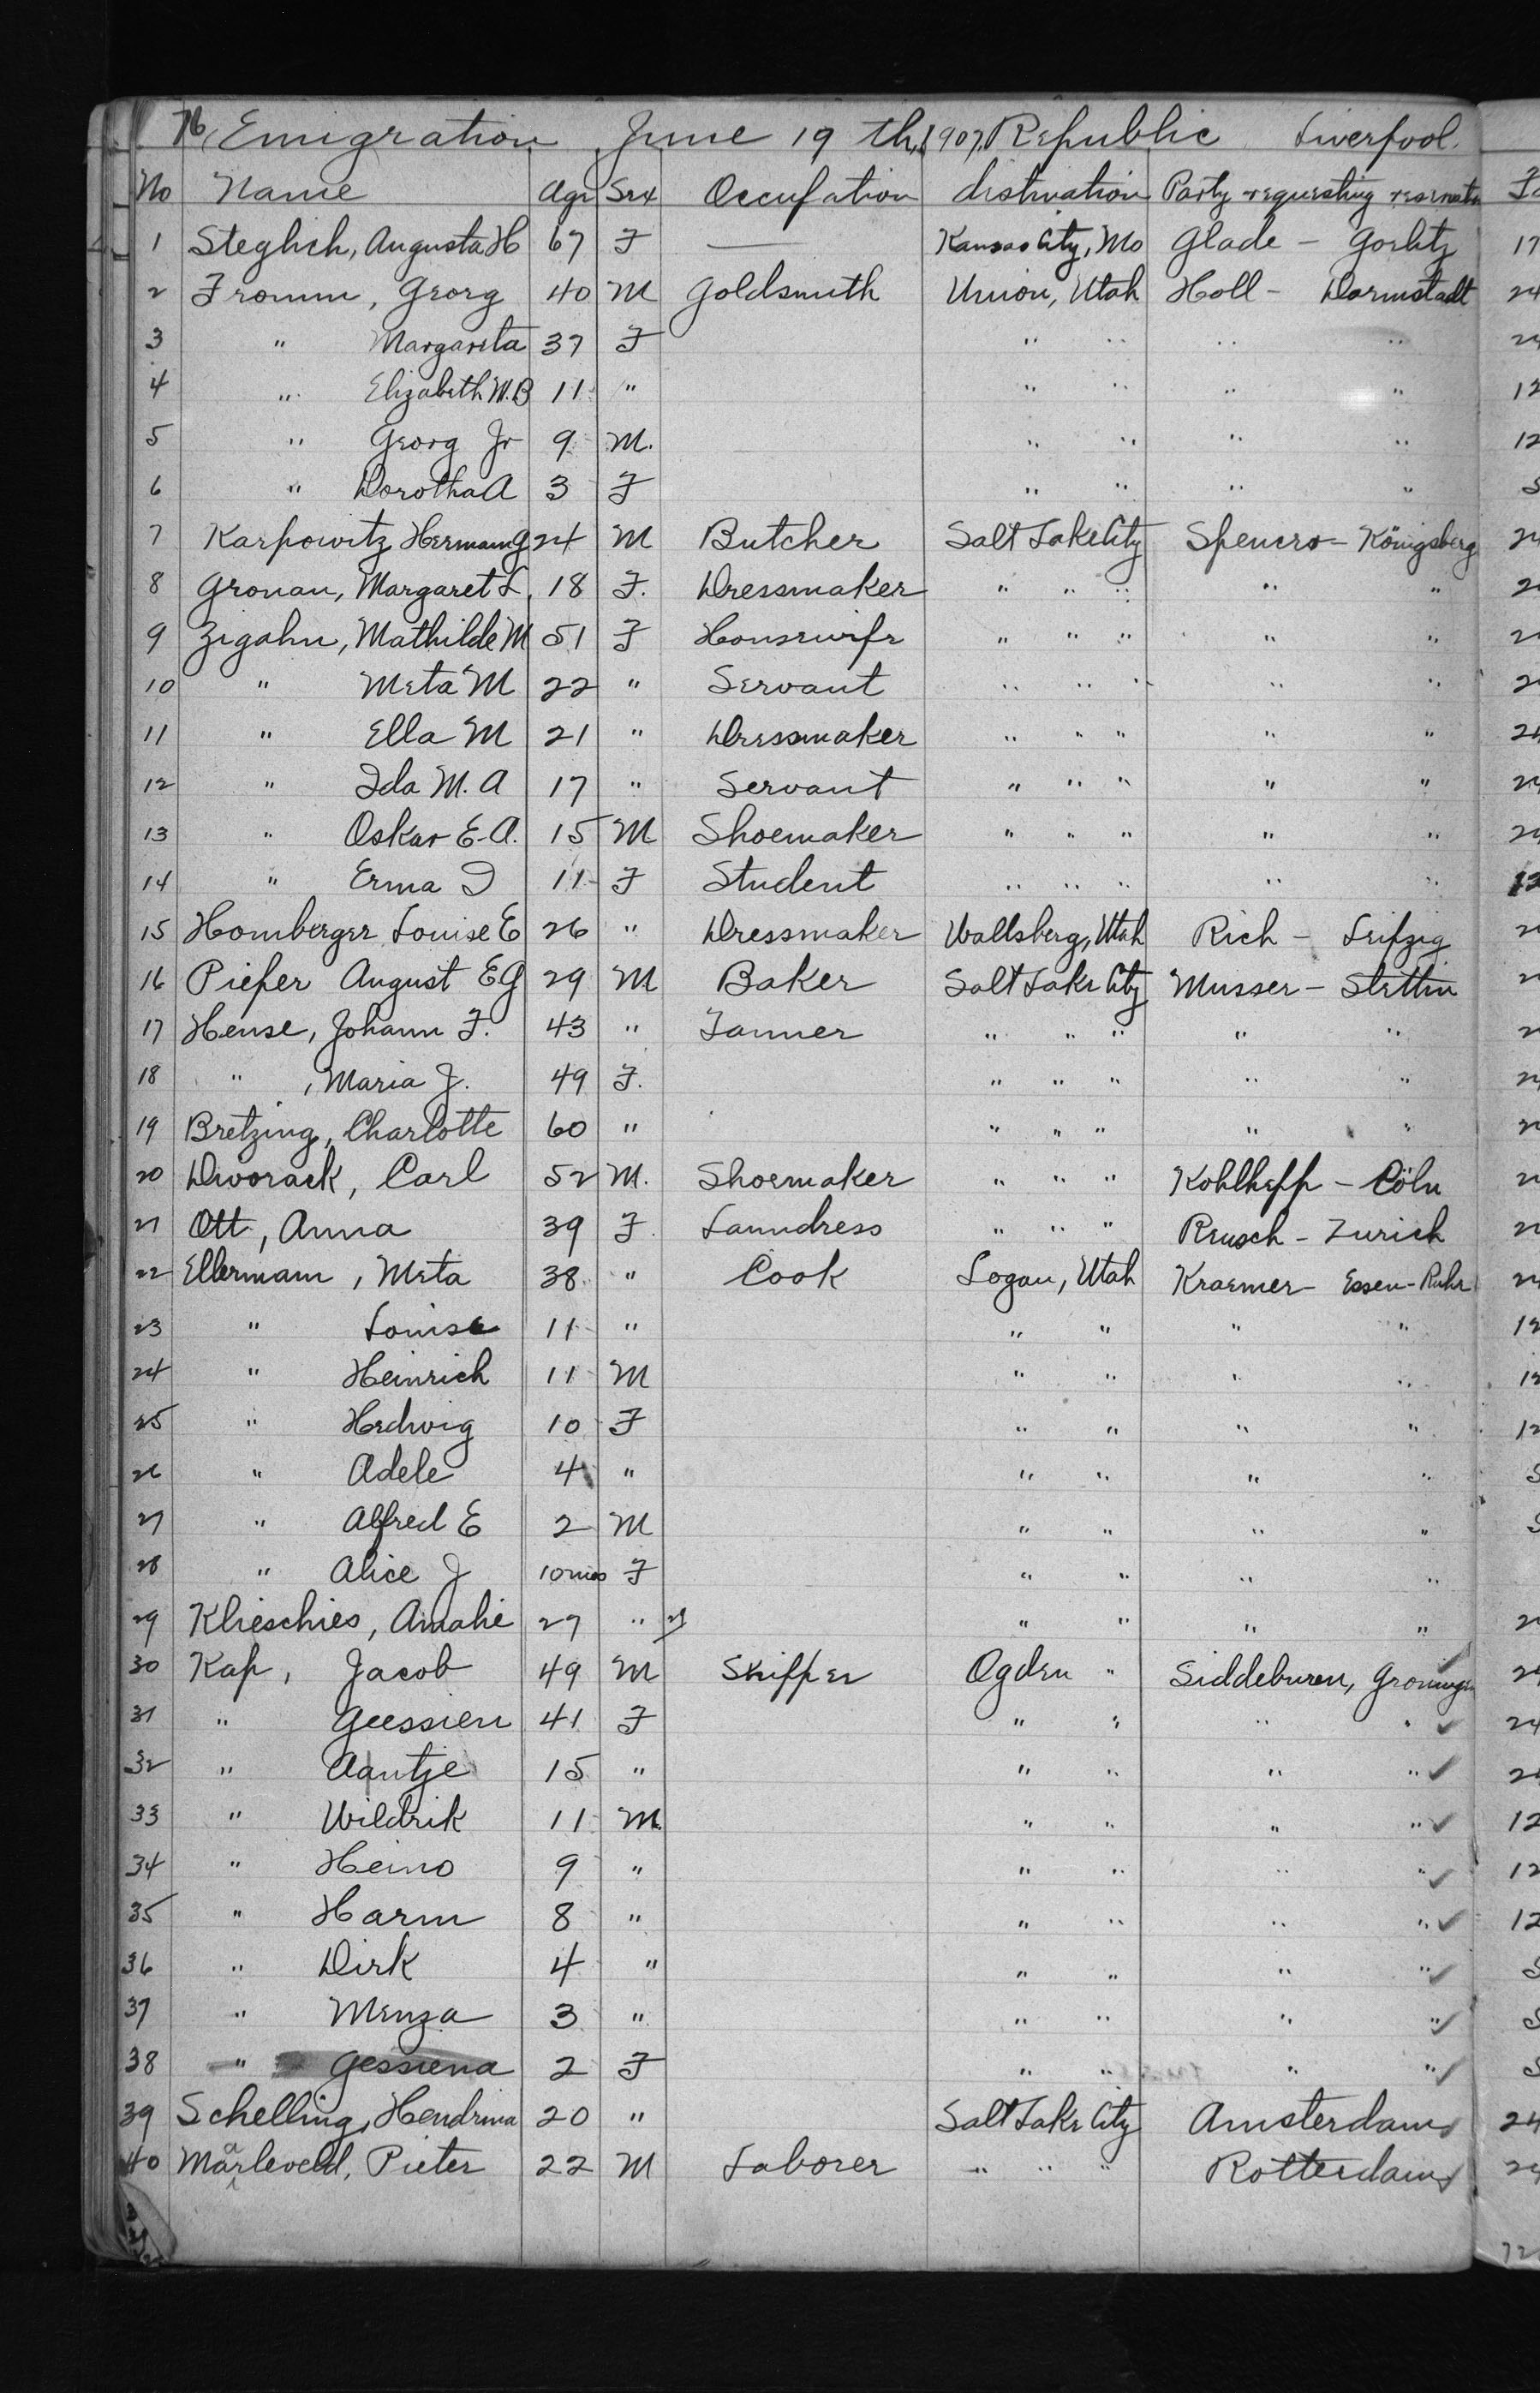 76 Emigration June 19th, 1907. Republic Liverpool.
No Name Age Sex Occupation destination Party requesting
1 Steglich, Augusta H 67 F — Kansas City, Mo Glade - Gorlitz 17
2 Fromm, Georg 40 M Goldsmith Union, Utah Holl - Darmstadt 24
3 " Margareta 37 F " " " "
4 " Elizabeth M.B 11 " " " " " 12
5 " Georg Jr 9 M. " " " " 12
6 " Dorotha A 3 F " " " "
7 Karpowitz Hermann G 24 M Butcher Salt Lake City Spencer - Königsberg
8 Gronau, Margaret L. 18 F. Dressmaker " " " " "
9 Zigahn, Mathilde M 51 F Housewife " " " " "
10 " Meta M 22 " Servant " " " " "
11 " Ella M 21 " Dressmaker " " " " "
12 " Ida M. A 17 " Servant " " " " "
13 " Oskar E. A. 15 M Shoemaker " " " " "
14 " Erma I 11 F Student " " " " " 12
15 Homberger Louise E 26 " Dressmaker Wallsberg, Utah Rich - Leipzig
16 Pieper August E G 29 M Baker Salt Lake City Musser - Stettin
17 Hense, Johann F. 43 " Tanner " " " " "
18 " , Maria J. 49 F. " " " " "
19 Bretzing, Charlotte 60 " " " " " "
20 Dworack, Carl 52 M. Shoemaker " " " Kohlhepp - Cöln
21 Ott, Anna 39 F. Laundress " " " Reusch - Zurich
22 Ellermann, Meta 38 " Cook Logan, Utah Kraemer - Essen-Ruhr
23 " Louise 11 " " " " " 12
24 " Heinrich 11 M " " " " 12
25 " Hedwig 10 F " " " " 12
26 " Adele 4 " " " " "
27 " Alfred E 2 M " " " "
28 " Alice J 10 mos F " " " "
29 Klieschies, Amalie 27 " " " " "
30 Kap, Jacob 49 M Skipper Ogden " Siddeburen, Groningen
31 " Geessien 41 F " " " " 24
32 " Aantje 15 " " " " "
33 " Wildrik 11 M. " " " " 12
34 " Heino 9 " " " " " 12
35 " Harm 8 " " " " " 12
36 " Dirk 4 " " " " "
37 " Menza 3 " " " " "
38 " Gessiena 2 F " " " "
39 Schelling, Hendrina 20 " Salt Lake City Amsterdam 24
40 Maarleveld, Pieter 22 M Laborer " " " Rotterdam